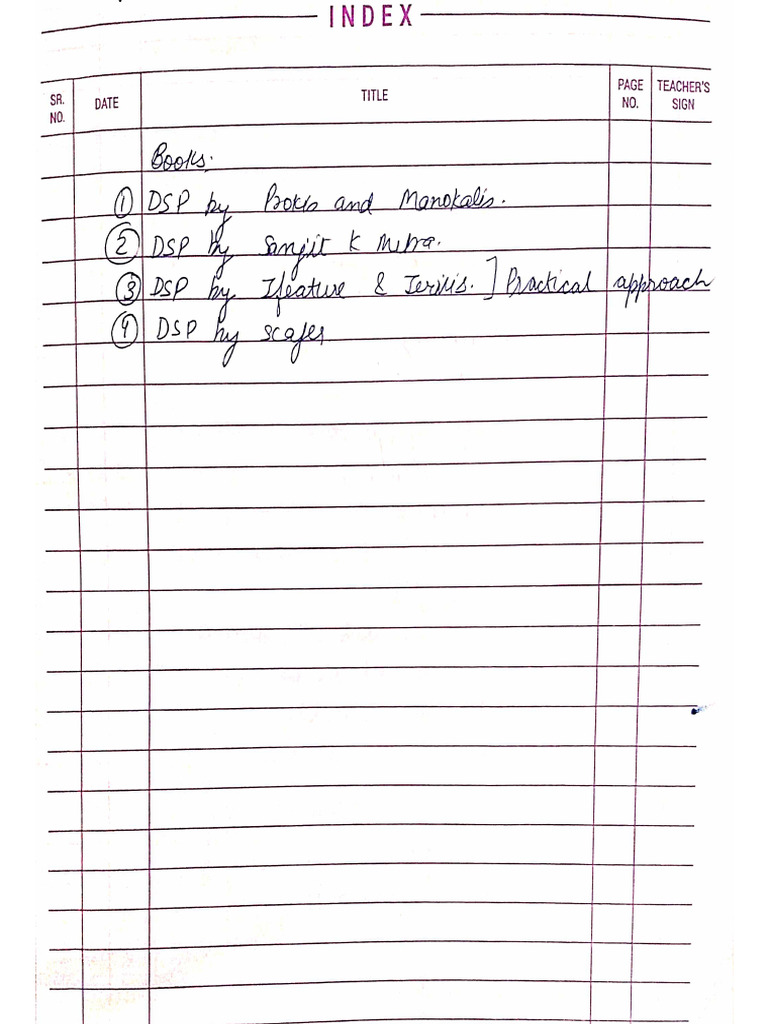 INDEX
SR. NO. DATE TITLE PAGE NO. TEACHER'S SIGN
Books:
1 DSP by Prokis and Manokalis.
2 DSP by Sanjit K Mitra.
3 DSP by Ifeature & Jervis. ] Practical approach
4 DSP by scafer